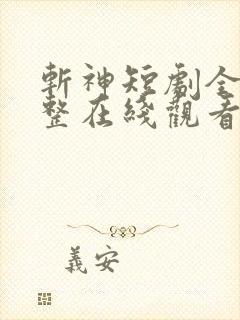 斬神短劇全
整在綫觀看
義安